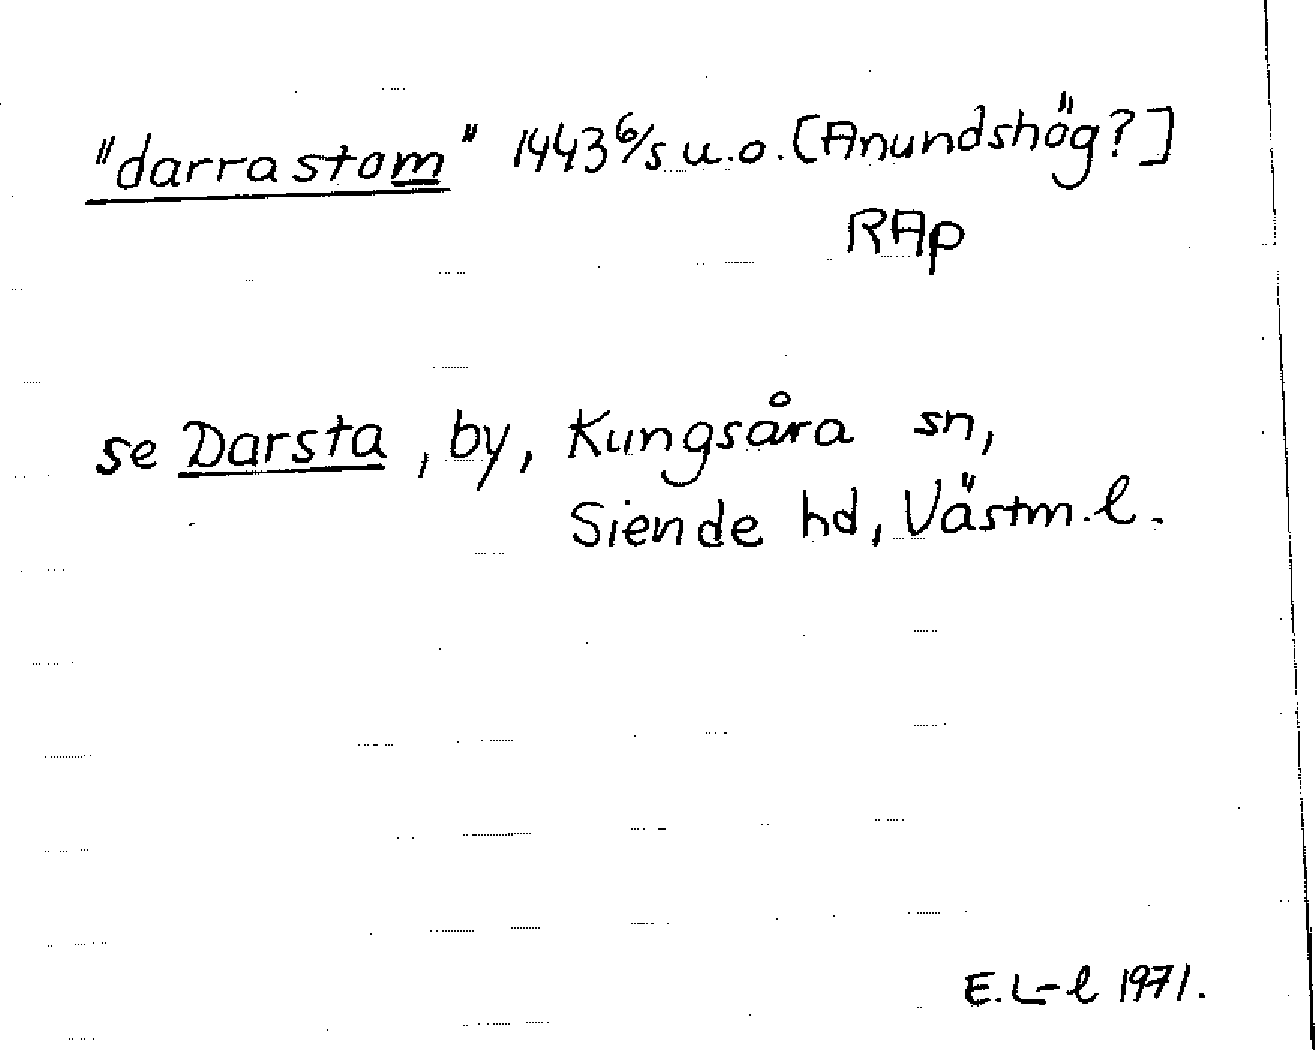 "darrastom" 1443 6/5 u.o. [Anundshög?]
RAp
se Darsta, by, Kungsåra sn,
Siende hd, Västm.l.
E.L-l 1971.